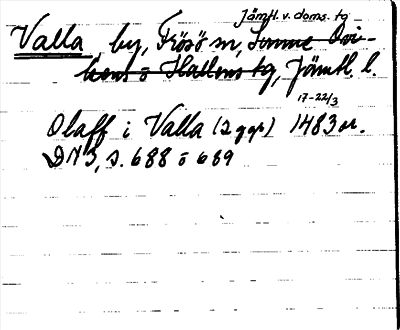 Jämtl. v. doms. tg
Valla, by, Frösö sn, Sunne Ovi-
kens o Hallens tg, Jämtl. l.
17-22/3
Olaff i Valla (2 ggr) 1483 or.
DN 3, s. 688 o 689